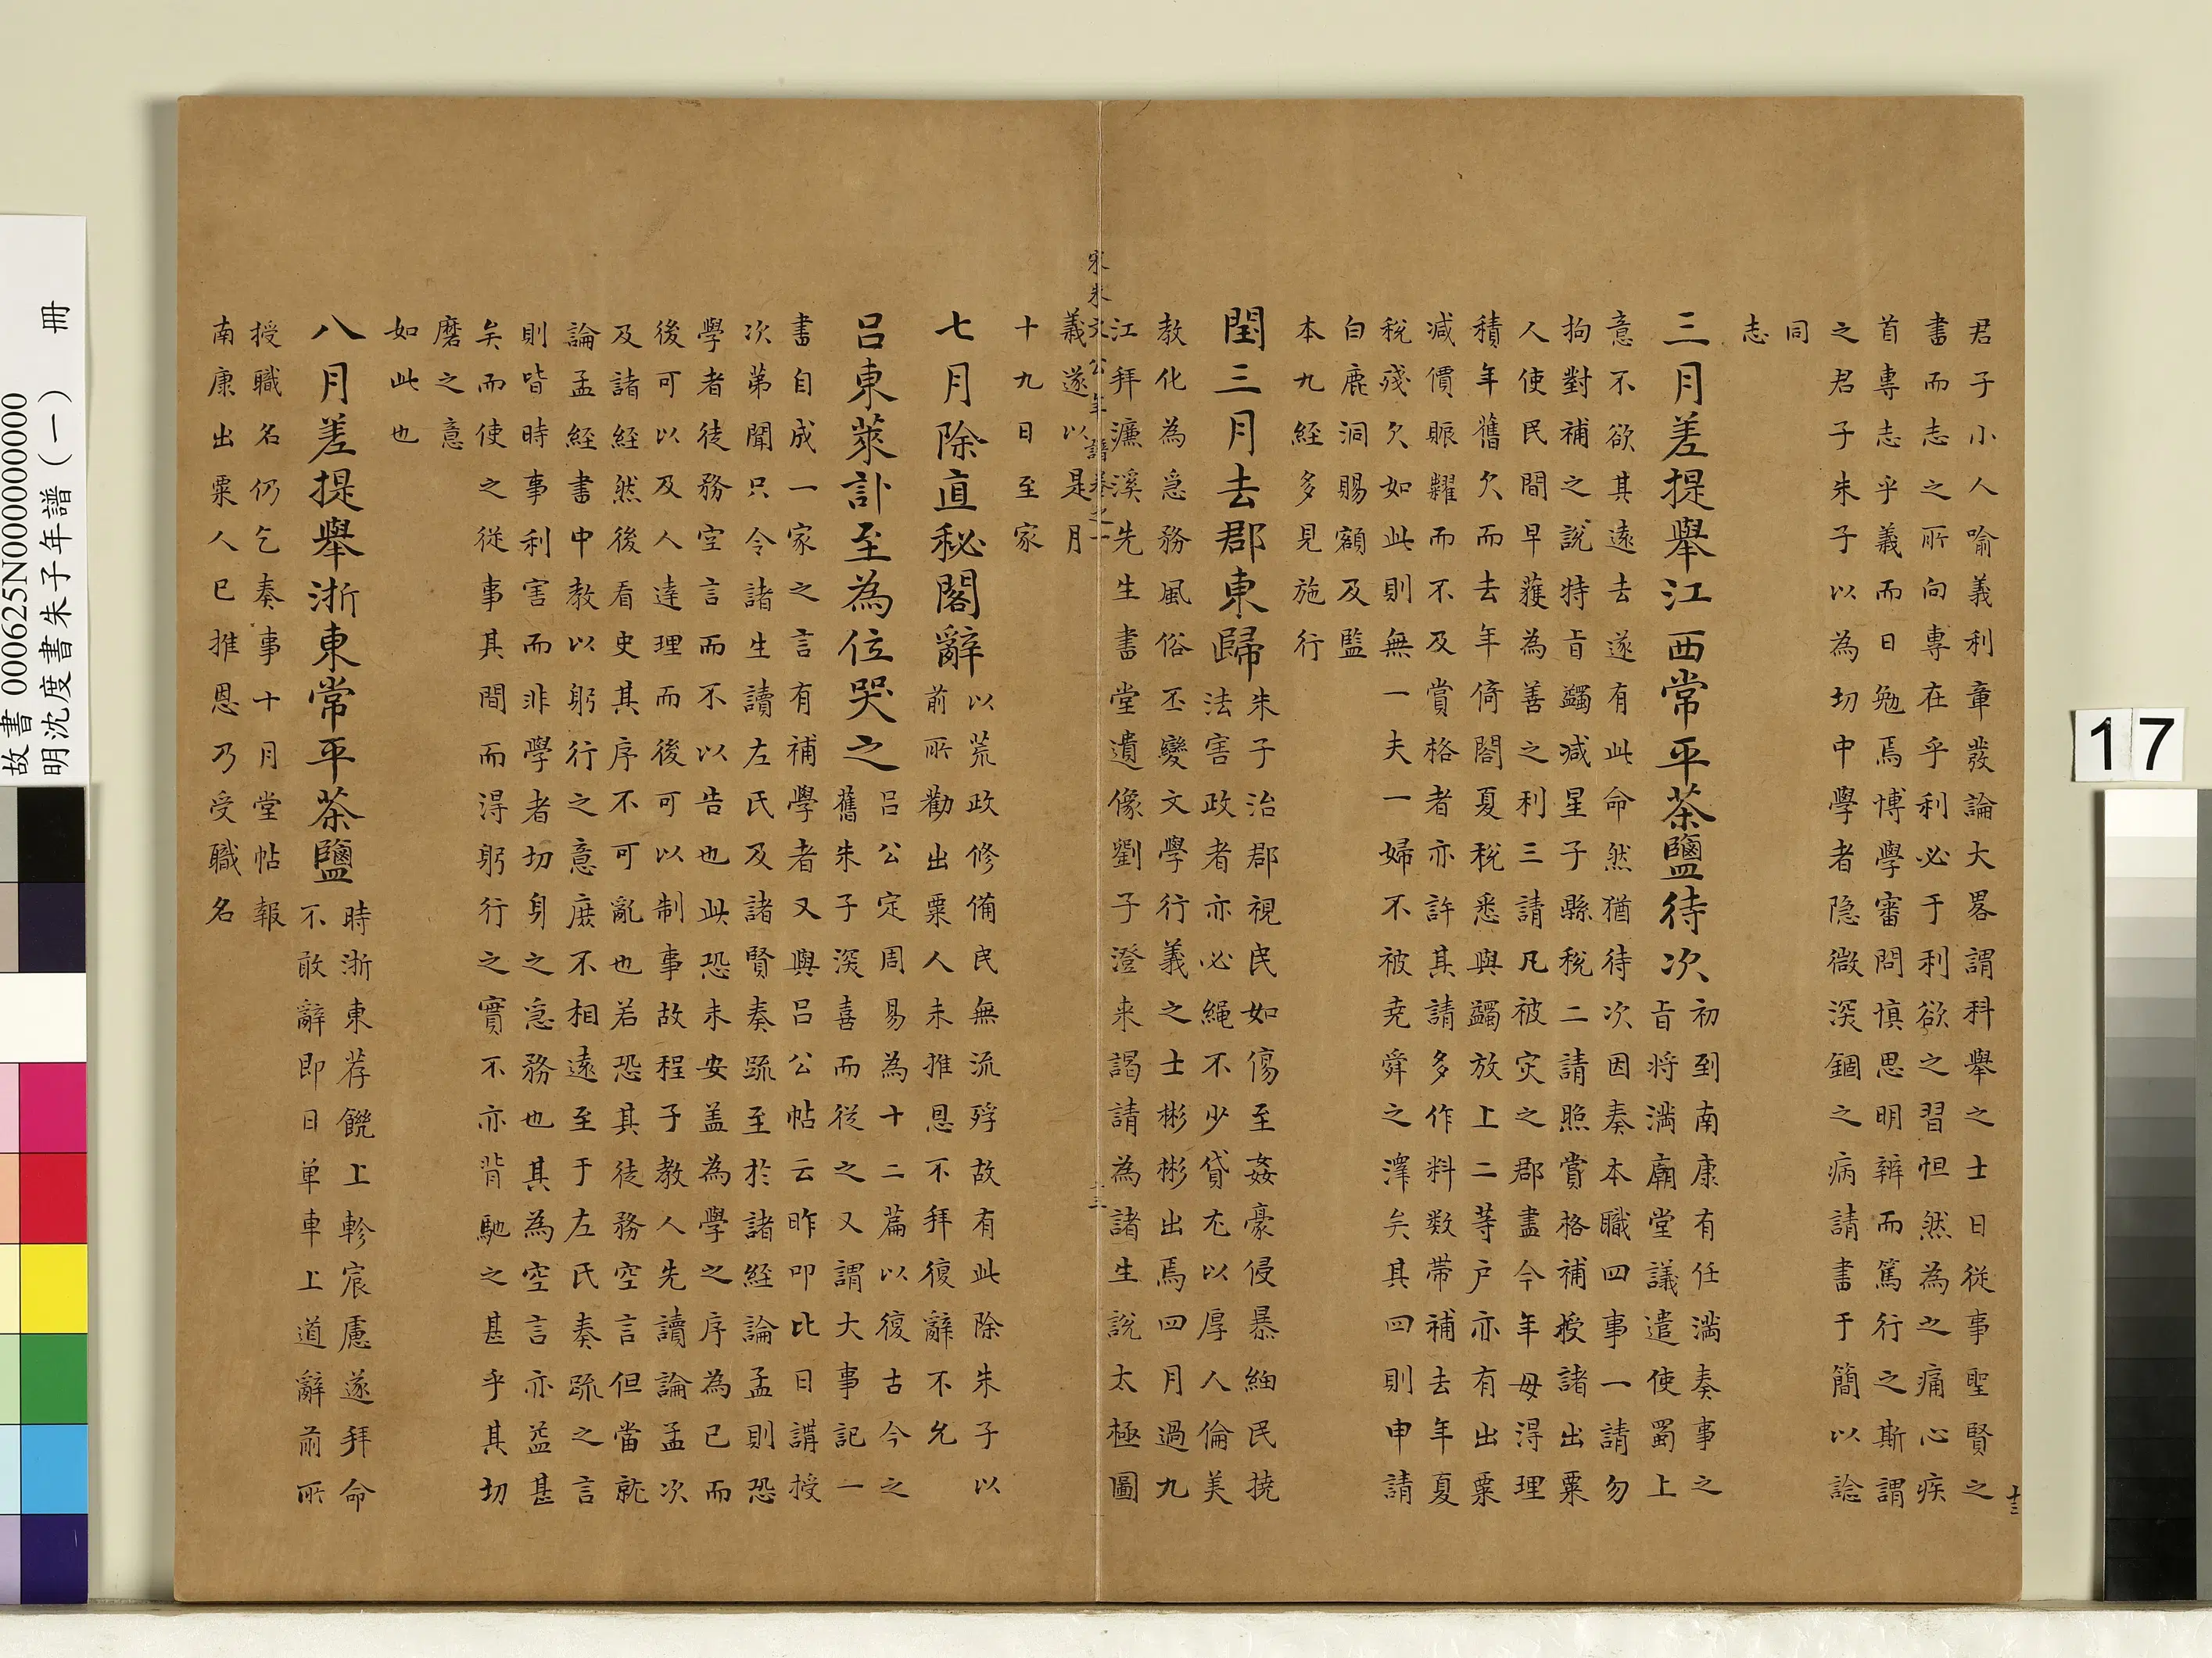 君子小人喻義利章發論大畧謂科舉之士日從事聖賢之
書而志之所向專在乎利必于利欲之習怛然為之痛心疾
首專志乎義而日勉焉博學審問慎思明辨而篤行之斯謂
之君子朱子以為切中學者隐微深錮之病請書于簡以諗
同
志
三月差提舉江西常平茶鹽待次初到南康有任滿奏事之
旨將滿廟堂議遣使蜀上
意不欲其遠去遂有此命然猶待次因奏本職四事一請勿
拘對補之說特旨蠲减星子縣稅二請照賞格補授諸出粟
人使民間早獲為善之利三請凡被灾之郡盡今年毋得理
積年舊欠而去年倚閣夏稅悉與蠲放上二等户亦有出粟
减價賑糶而不及賞格者亦許其請多作料数带補去年夏
稅殘欠如此則無一夫一婦不被尭舜之澤矣其四則申請
白鹿洞賜額及監
本九経多見施行
閏三月去郡東歸朱子治郡視民如傷至姦豪侵暴細民撓
法害政者亦必繩不少貸尤以厚人倫美
教化為急務風俗丕變文學行義之士彬彬出焉四月過九
江拜濂溪先生書堂遺像劉子澄来謁請為諸生說太極圖
義遂以是月
十九日至家
宋朱文公年譜卷之一
十三
七月除直秘閣辭以荒政修備民無流殍故有此除朱子以
前所勸出粟人未推恩不拜復辭不允
呂東萊訃至為位哭之呂公定周易為十二篇以復古今之
舊朱子深喜而從之又謂大事記一
書自成一家之言有補學者又與呂公帖云昨叩比日講授
次第聞只令諸生讀左氏及諸賢奏疏至於諸経論孟則恐
學者徒務空言而不以告也此恐未安盖為學之序為已而
後可以及人達理而後可以制事故程子教人先讀論孟次
及諸経然後看史其序不可亂也若恐其徒務空言但當就
論孟経書中教以躬行之意庶不相遠至于左氏奏疏之言
則皆時事利害而非學者切身之急務也其為空言亦益甚
矣而使之従事其間而淂躬行之實不亦背馳之甚乎其切
磨之意
如此也
八月差提舉浙東常平茶鹽時浙東荐饑上軫宸慮遂拜命
不敢辭即日单車上道辭前所
授職名仍乞奏事十月堂帖報
南康出粟人已推恩乃受職名
十三
17
故書 000625N000000000
明沈度書朱子年譜（一） 冊